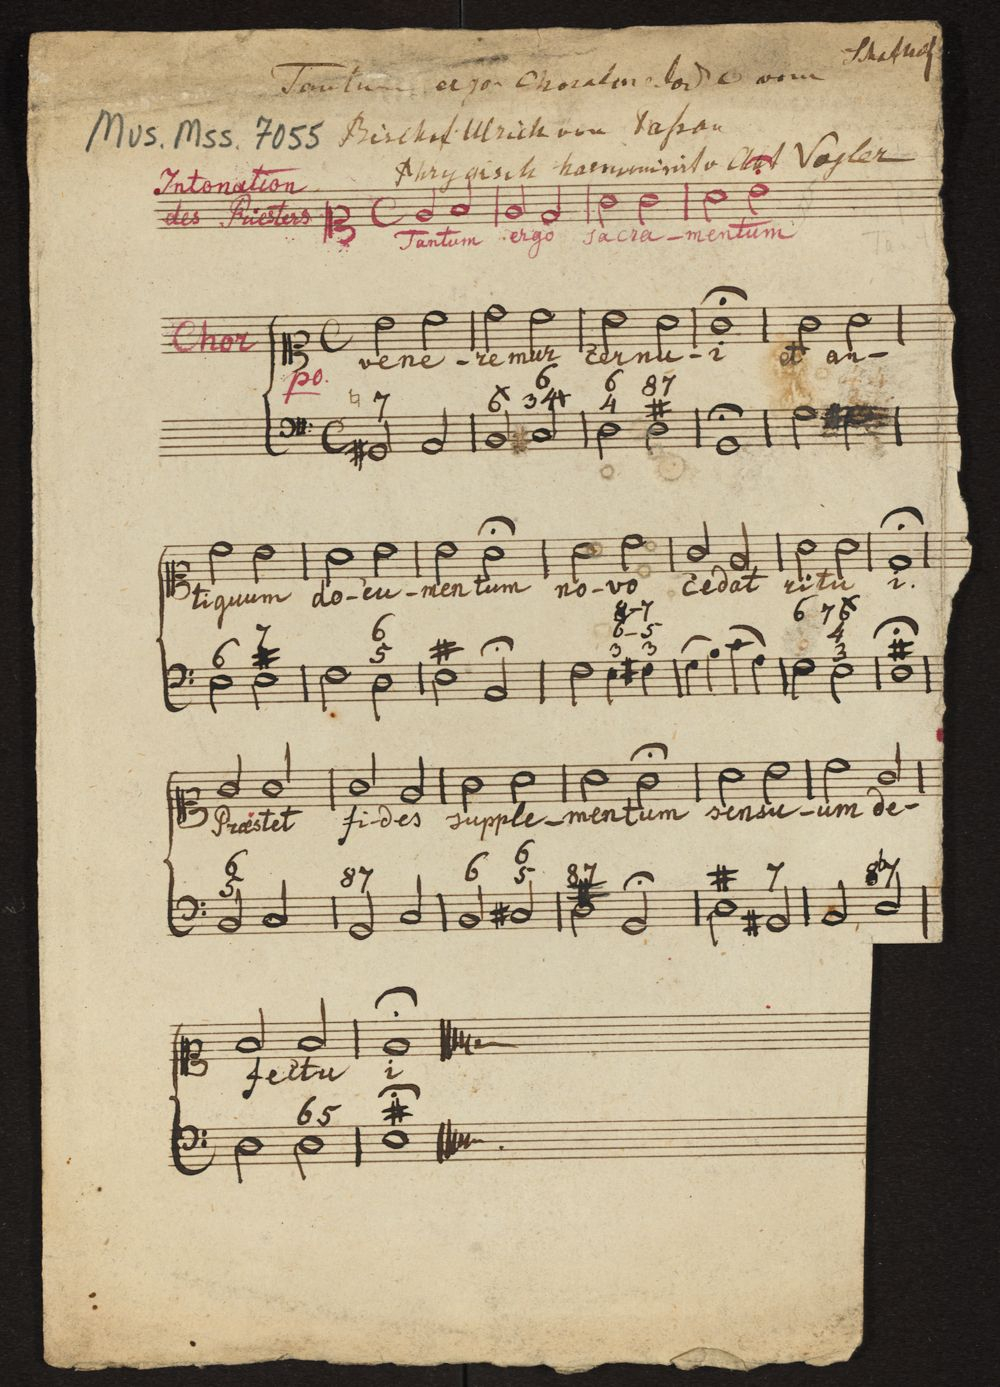 Schafhof
Tantum ergo Choralmelodie vom
Mus. Mss. 7055 Bischof Ulrich von Passau
Phrygisch harmonisirt v Abt Vogler
Intonation
des Priesters
C
Tantum ergo sacra-mentum
Chor C
vene-remur cernu-i et an-
po.
6 6
7 6 34 4 87
C
tiquum do-cu-mentum no-vo cedat ritu i.
8-7
7 6 6-5 6 76
6 5 3 3 4
3
Præstet fi-des supple-mentum sensu-um de-
6 6
5 87 6 5 87 7 8b7
fectu i
65